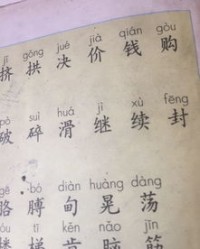 jǐ gǒng jué jià qián gòu
挤 拱 决 价 钱 购
pò suì huá jì xù fēng
破 碎 滑 继 续 封
gē bó diàn huàng dàng
胳 膊 甸 晃 荡
tī kěn nǎo jīn
梯 肯 筋